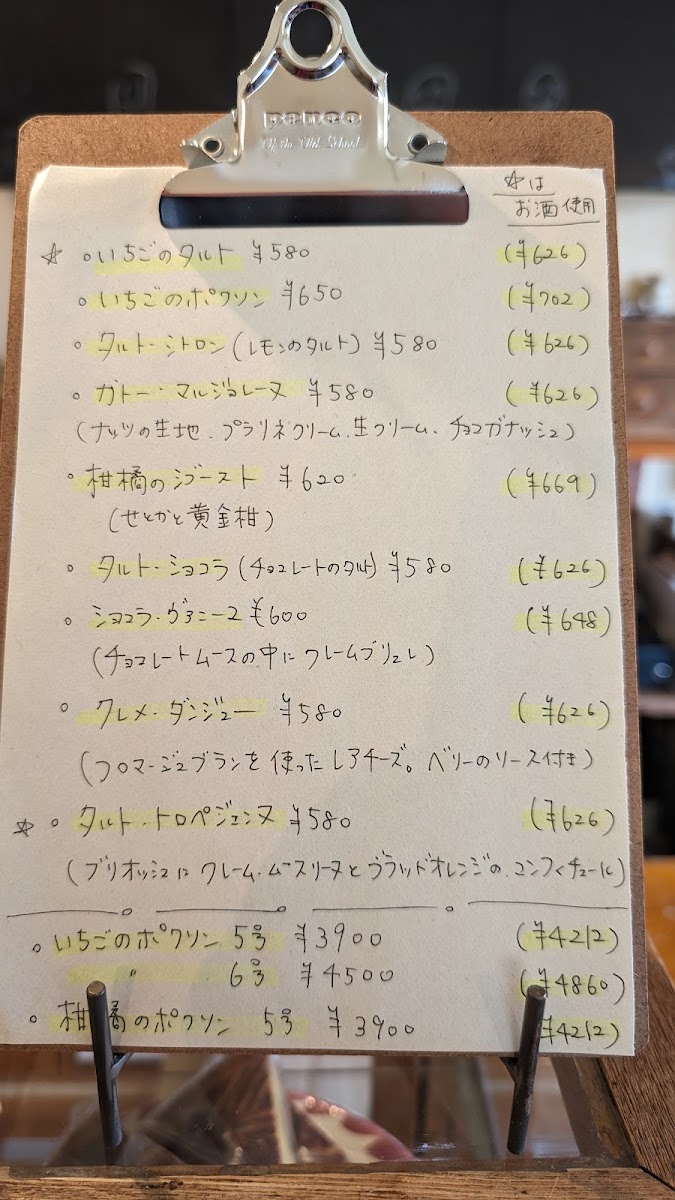 penco
"Of the Old School."
☆は
お酒使用
☆ ○いちごのタルト ¥580 (¥626)
○いちごのポワソン ¥650 (¥702)
○タルト・シトロン(レモンのタルト) ¥580 (¥626)
○ガトー・マルジョレーヌ ¥580 (¥626)
(ナッツの生地、プラリネクリーム、生クリーム、チョコガナッシュ)
○柑橘のシブースト ¥620 (¥669)
(せとかと黄金柑)
○タルト・ショコラ(チョコレートのタルト) ¥580 (¥626)
○ショコラ・ヴァニーユ ¥600 (¥648)
(チョコレートムースの中にクレームブリュレ)
○クレメ・ダンジュー ¥580 (¥626)
(フロマージュブランを使ったレアチーズ。ベリーのソース付き)
☆ ○タルト・トロペジェンヌ ¥580 (¥626)
(ブリオッシュにクレーム・ムースリーヌとブラッドオレンジの、コンフィチュール)
○いちごのポワソン 5号 ¥3900 (¥4212)
〃 6号 ¥4500 (¥4860)
○柑橘のポワソン 5号 ¥3900 (¥4212)